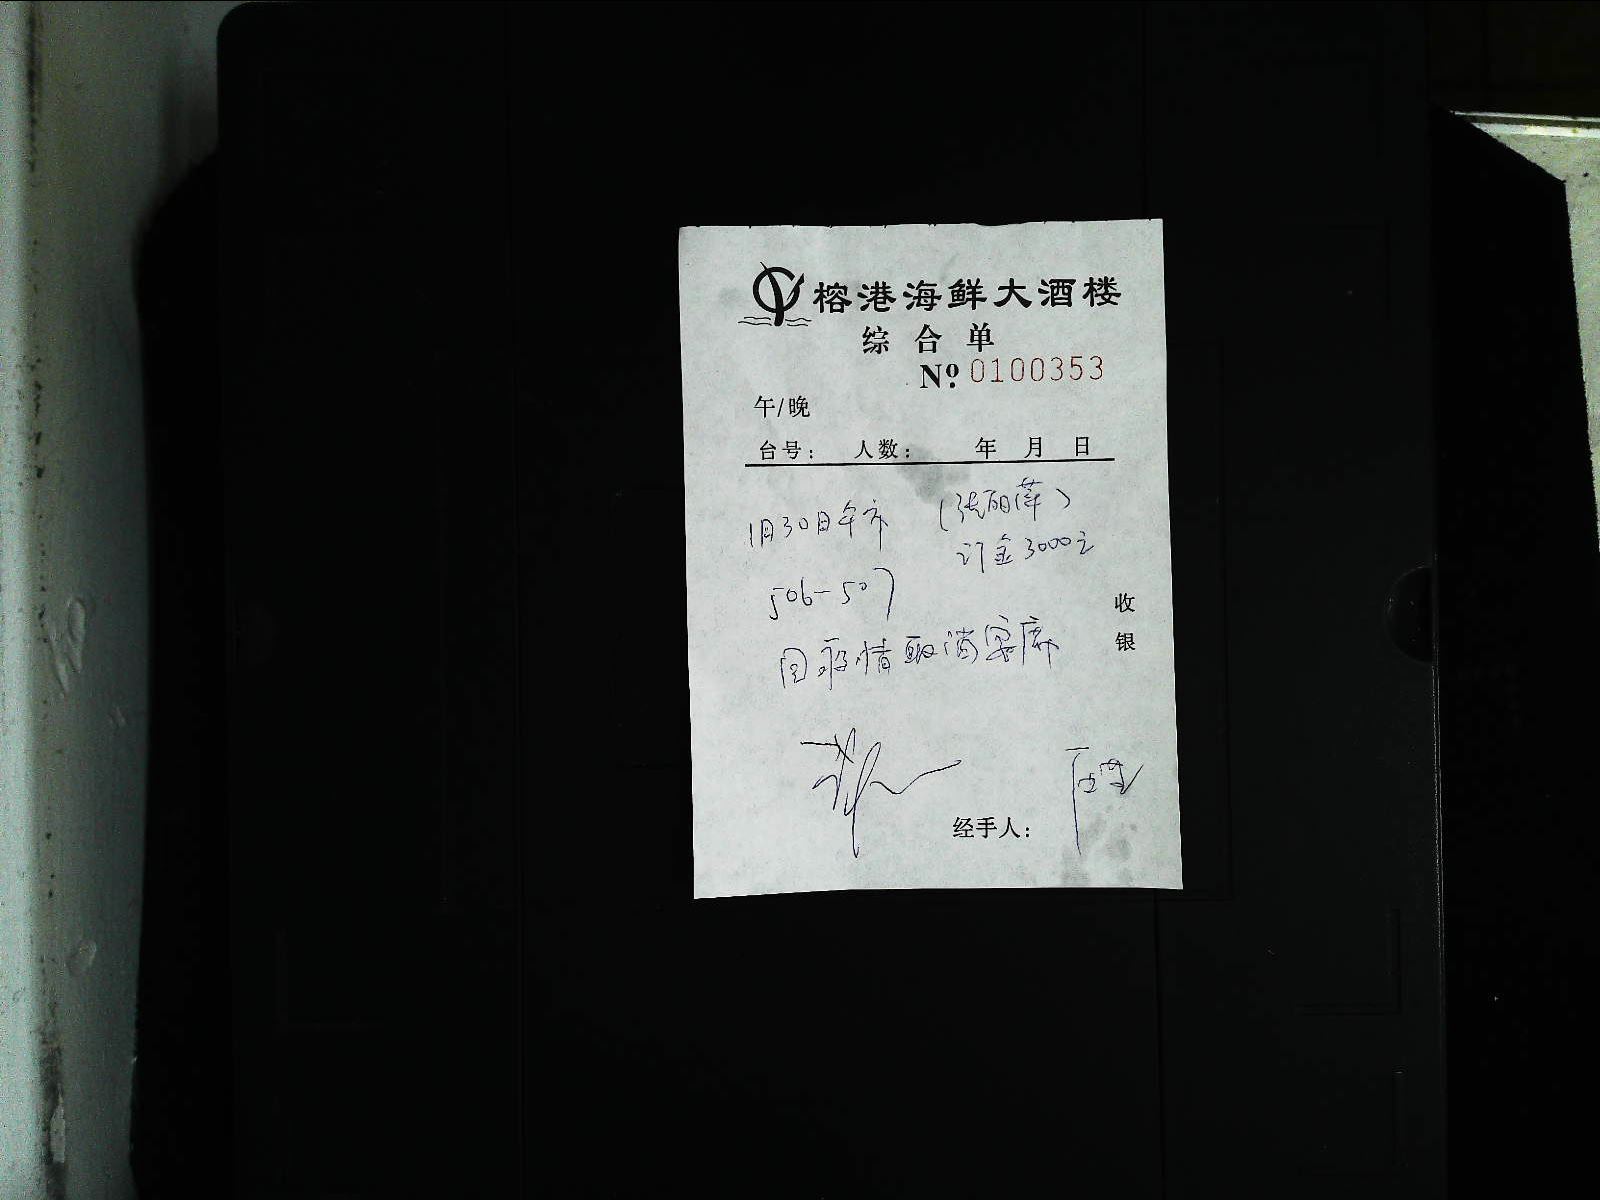 榕港海鲜大酒楼
综合单
Nº. 0100353
午/晚
台号： 人数： 年 月 日
1月30日午市 (张丽萍)
订金3000元
506-507
因疫情取消宴席
收银
经手人：